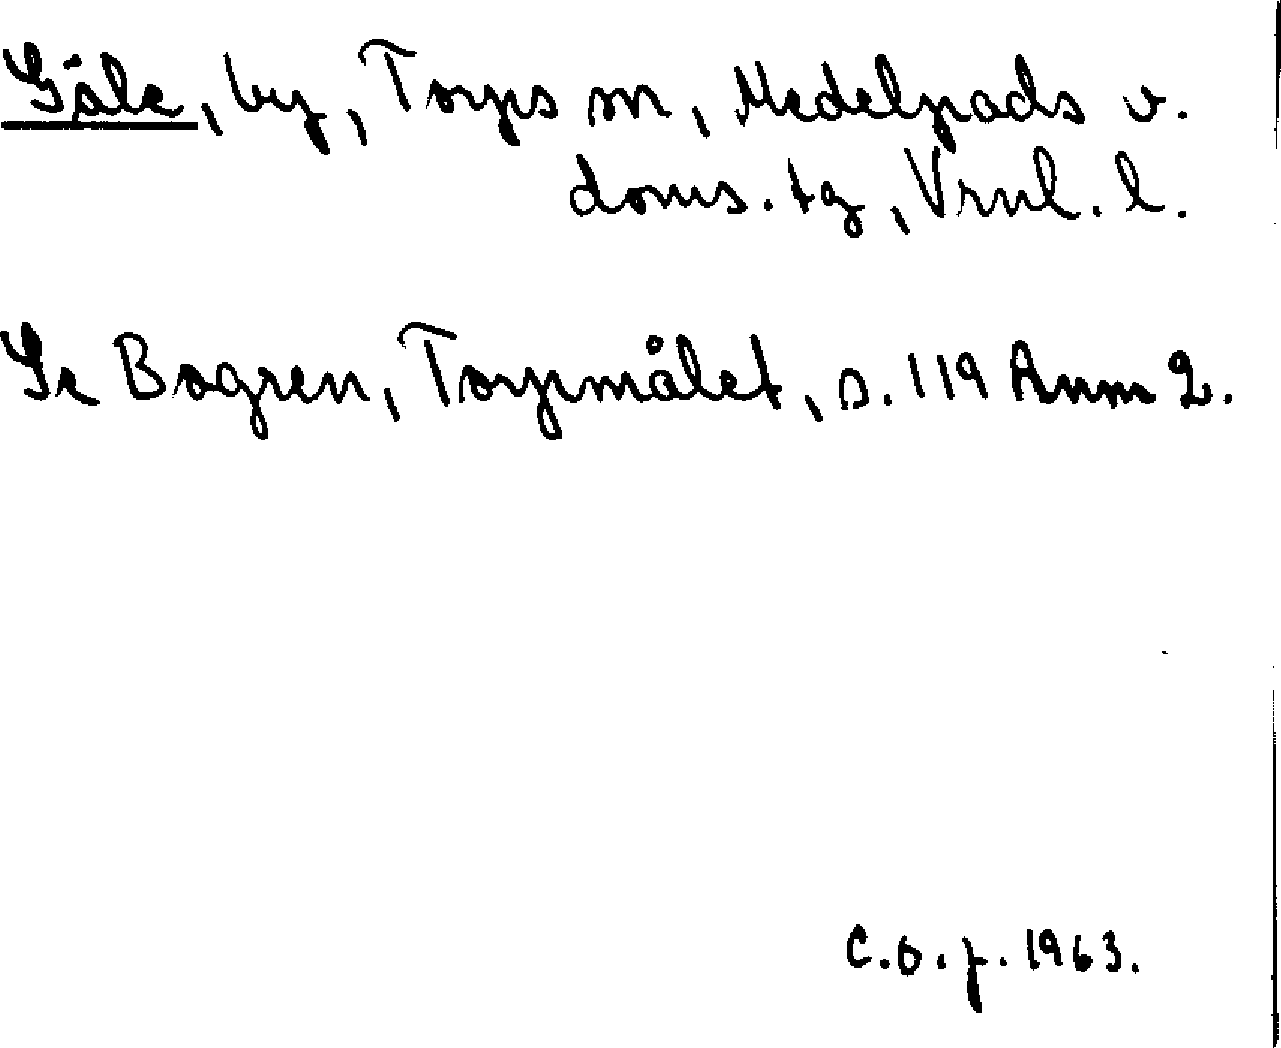 Säle, by, Torps sn, Medelpads v.
doms. tg, Vrnl. l.
Se Bogren, Torpmålet, s. 119 Anm 2.
C.O.f. 1963.